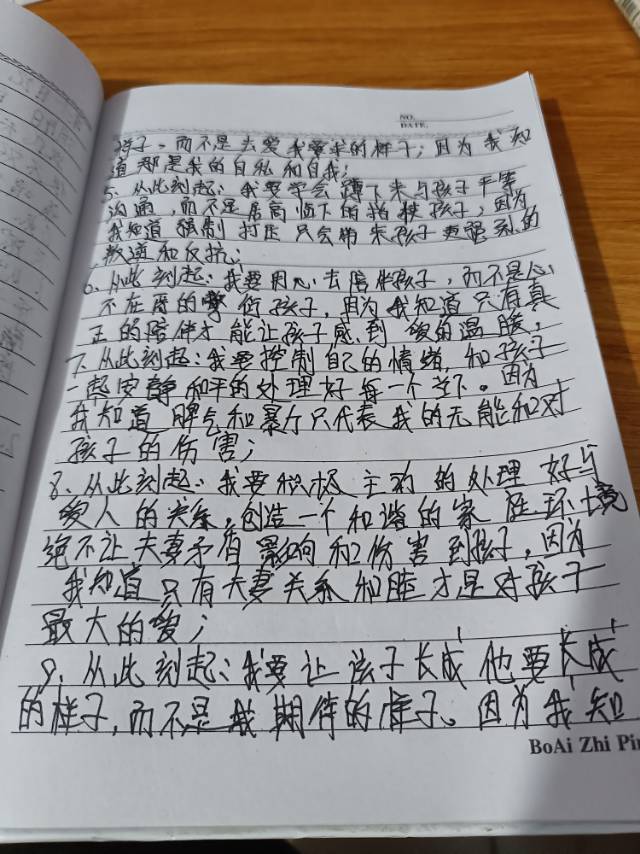 NO.
DATE.
孩子。而不是去爱我要求的样子；因为我知
道那是我的自私和自我；
5、从此刻起：我要学会蹲下来与孩子平等
沟通，而不是居高临下的指挥孩子，因为
我知道强制打压只会带来孩子更强烈的
叛逆和反抗；
6、从此刻起：我要用心去陪伴孩子，而不是心
不在焉的孩子，因为我知道只有真
正的陪伴才能让孩子感到爱的温暖；
7、从此刻起：我要控制自己的情绪，和孩子
一起安静和平的处理好每一个当下。因为
我知道脾气和暴力只代表我的无能和对
孩子的伤害；
8、从此刻起：我要积极主动的处理好与
爱人的关系，创造一个和谐的家庭环境
绝不让夫妻矛盾影响和伤害到孩子，因为
我知道只有夫妻关系和睦才是对孩子
最大的爱；
9、从此刻起：我要让孩子长成他要长成
的样子，而不是我期待的样子。因为我知
BoAi Zhi Pin